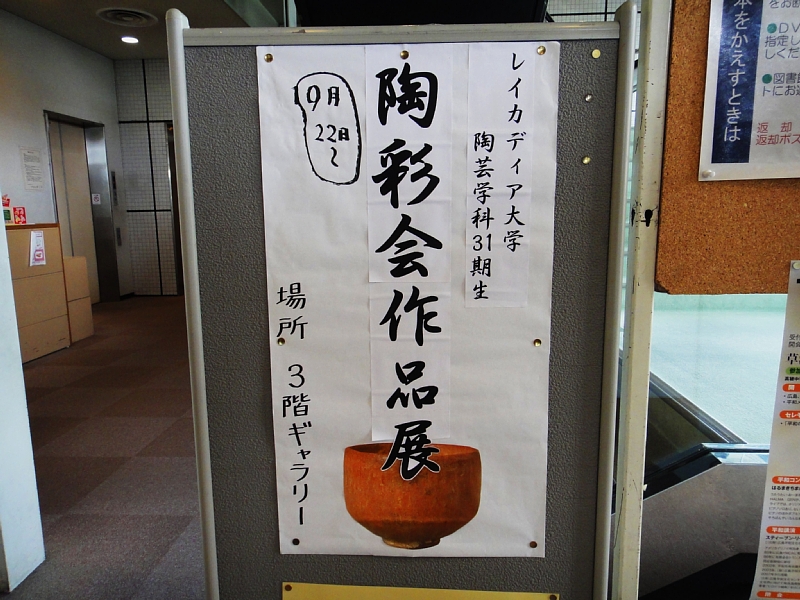 レイカディア大学
陶芸学科31期生
陶彩会作品展
9月
22日
～
場所 3階ギャラリー
本をかえすときは
返却
返却ポス
●DV
指定し
●図書
トにお
平和コン
平和講演